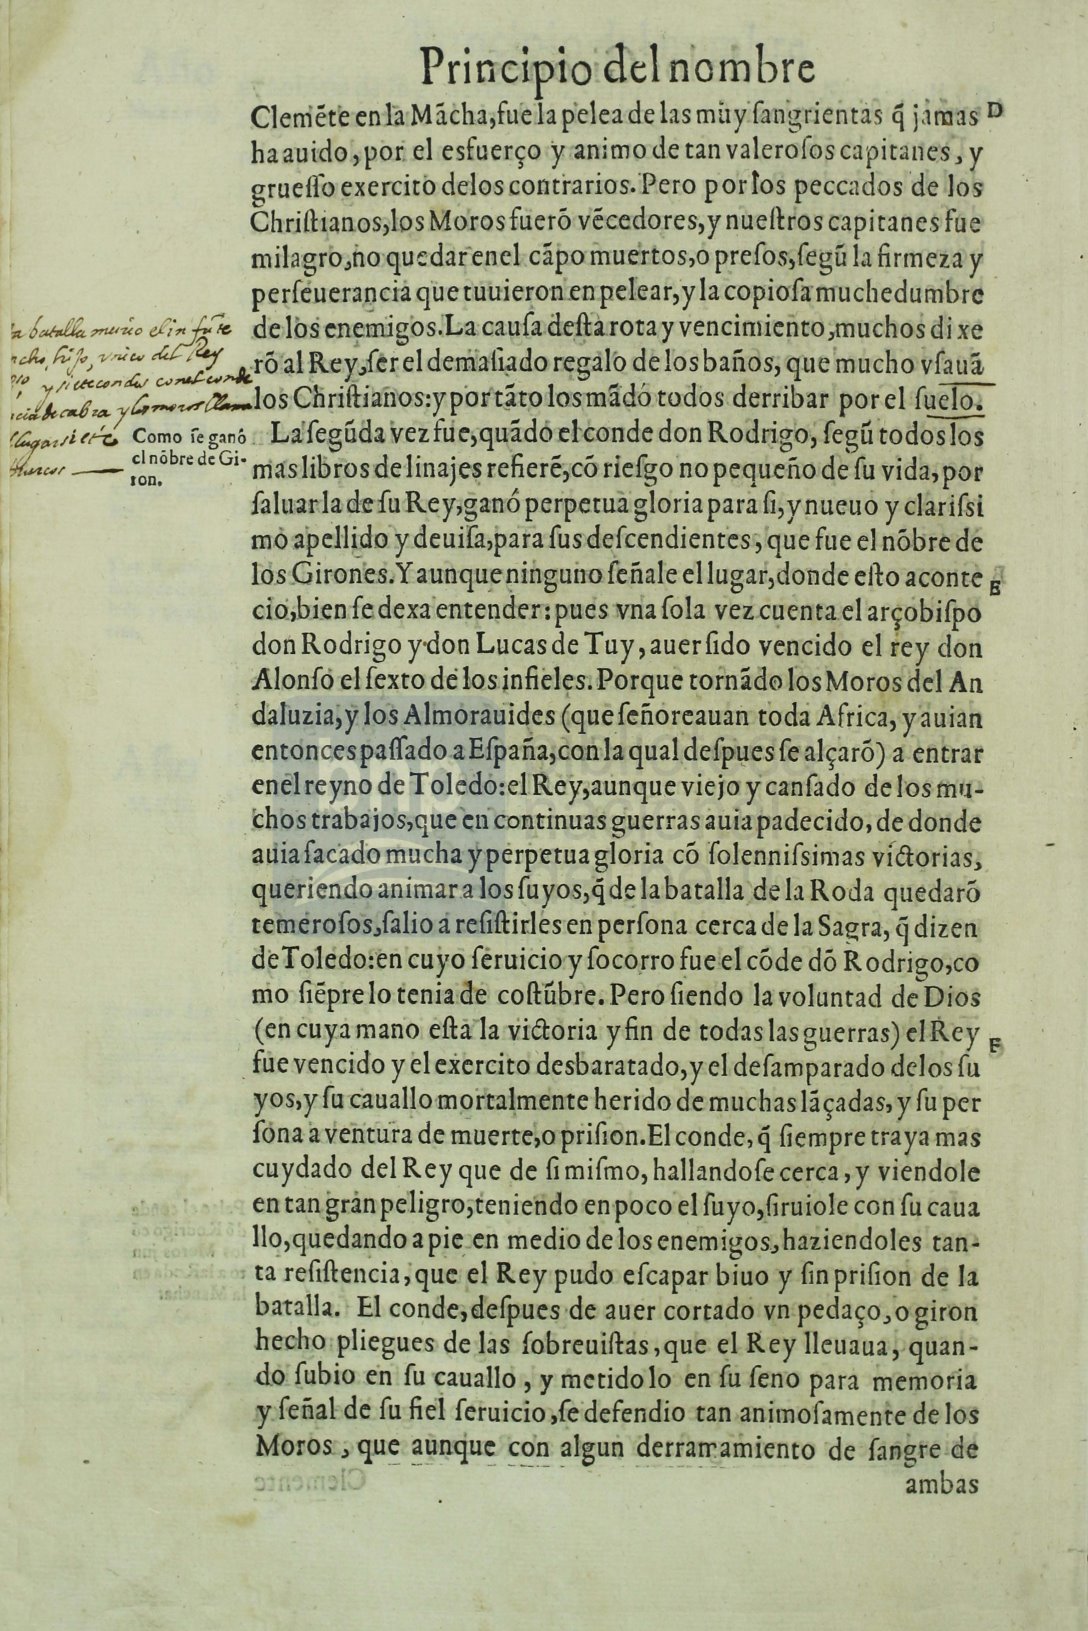 Principio del nombre
Clemẽte en la Mãcha, fue la pelea de las muy ſangrientas q̃ jamas D
ha auido, por el esfuerço y animo de tan valeroſos capitanes, y
grueſſo exercito delos contrarios. Pero por los peccados de los
Chriſtianos, los Moros fuerõ vẽcedores, y nueſtros capitanes fue
milagro, no quedar enel cãpo muertos, o preſos, ſegũ la firmeza y
perſeuerancia que tuuieron en pelear, y la copioſa muchedumbre
de los enemigos. La cauſa deſta rota y vencimiento, muchos dixe
rõ al Rey, ſer el demaſiado regalo de los baños, que mucho vſauã
los Chriſtianos: y por tãto los mãdó todos derribar por el ſuelo.
a batalla murio el infãte
ncho, hijo, vnico del Rey
y siete condes con el conde
cia de cabra y los moros llama
lugar siete
Puercos
Como ſe ganó
el nõbre de Gi-
ron.
La ſegũda vez fue, quãdo el conde don Rodrigo, ſegũ todos los
mas libros de linajes refierẽ, cõ rieſgo no pequeño de ſu vida, por
ſaluar la de ſu Rey, ganó perpetua gloria para ſi, y nueuo y clariſsi
mo apellido y deuiſa, para ſus deſcendientes, que fue el nõbre de
los Girones. Y aunque ninguno ſeñale el lugar, donde eſto aconte E
cio, bien ſe dexa entender: pues vna ſola vez cuenta el arçobiſpo
don Rodrigo y don Lucas de Tuy, auer ſido vencido el rey don
Alonſo el ſexto de los infieles. Porque tornãdo los Moros del An
daluzia, y los Almorauides (que ſeñoreauan toda Africa, y auian
entonces paſſado a Eſpaña, con la qual deſpues ſe alçarõ) a entrar
enel reyno de Toledo: el Rey, aunque viejo y canſado de los mu-
chos trabajos, que en continuas guerras auia padecido, de donde
auia ſacado mucha y perpetua gloria cõ ſolenniſsimas victorias,
queriendo animar a los ſuyos, q̃ de la batalla de la Roda quedarõ
temeroſos, ſalio a reſiſtirles en perſona cerca de la Sagra, q̃ dizen
de Toledo: en cuyo ſeruicio y ſocorro fue el cõde dõ Rodrigo, co
mo ſiẽpre lo tenia de coſtũbre. Pero ſiendo la voluntad de Dios
(en cuya mano eſta la victoria y fin de todas las guerras) el Rey F
fue vencido y el exercito desbaratado, y el deſamparado delos ſu
yos, y ſu cauallo mortalmente herido de muchas lãçadas, y ſu per
ſona a ventura de muerte, o priſion. El conde, q̃ ſiempre traya mas
cuydado del Rey que de ſi miſmo, hallandoſe cerca, y viendole
en tan gran peligro, teniendo en poco el ſuyo, ſiruiole con ſu caua
llo, quedando a pie en medio de los enemigos, haziendoles tan-
ta reſiſtencia, que el Rey pudo eſcapar biuo y ſin priſion de la
batalla. El conde, deſpues de auer cortado vn pedaço, o giron
hecho pliegues de las ſobreuiſtas, que el Rey lleuaua, quan-
do ſubio en ſu cauallo, y metido lo en ſu ſeno para memoria
y ſeñal de ſu fiel ſeruicio, ſe defendio tan animoſamente de los
Moros, que aunque con algun derramamiento de ſangre de
ambas